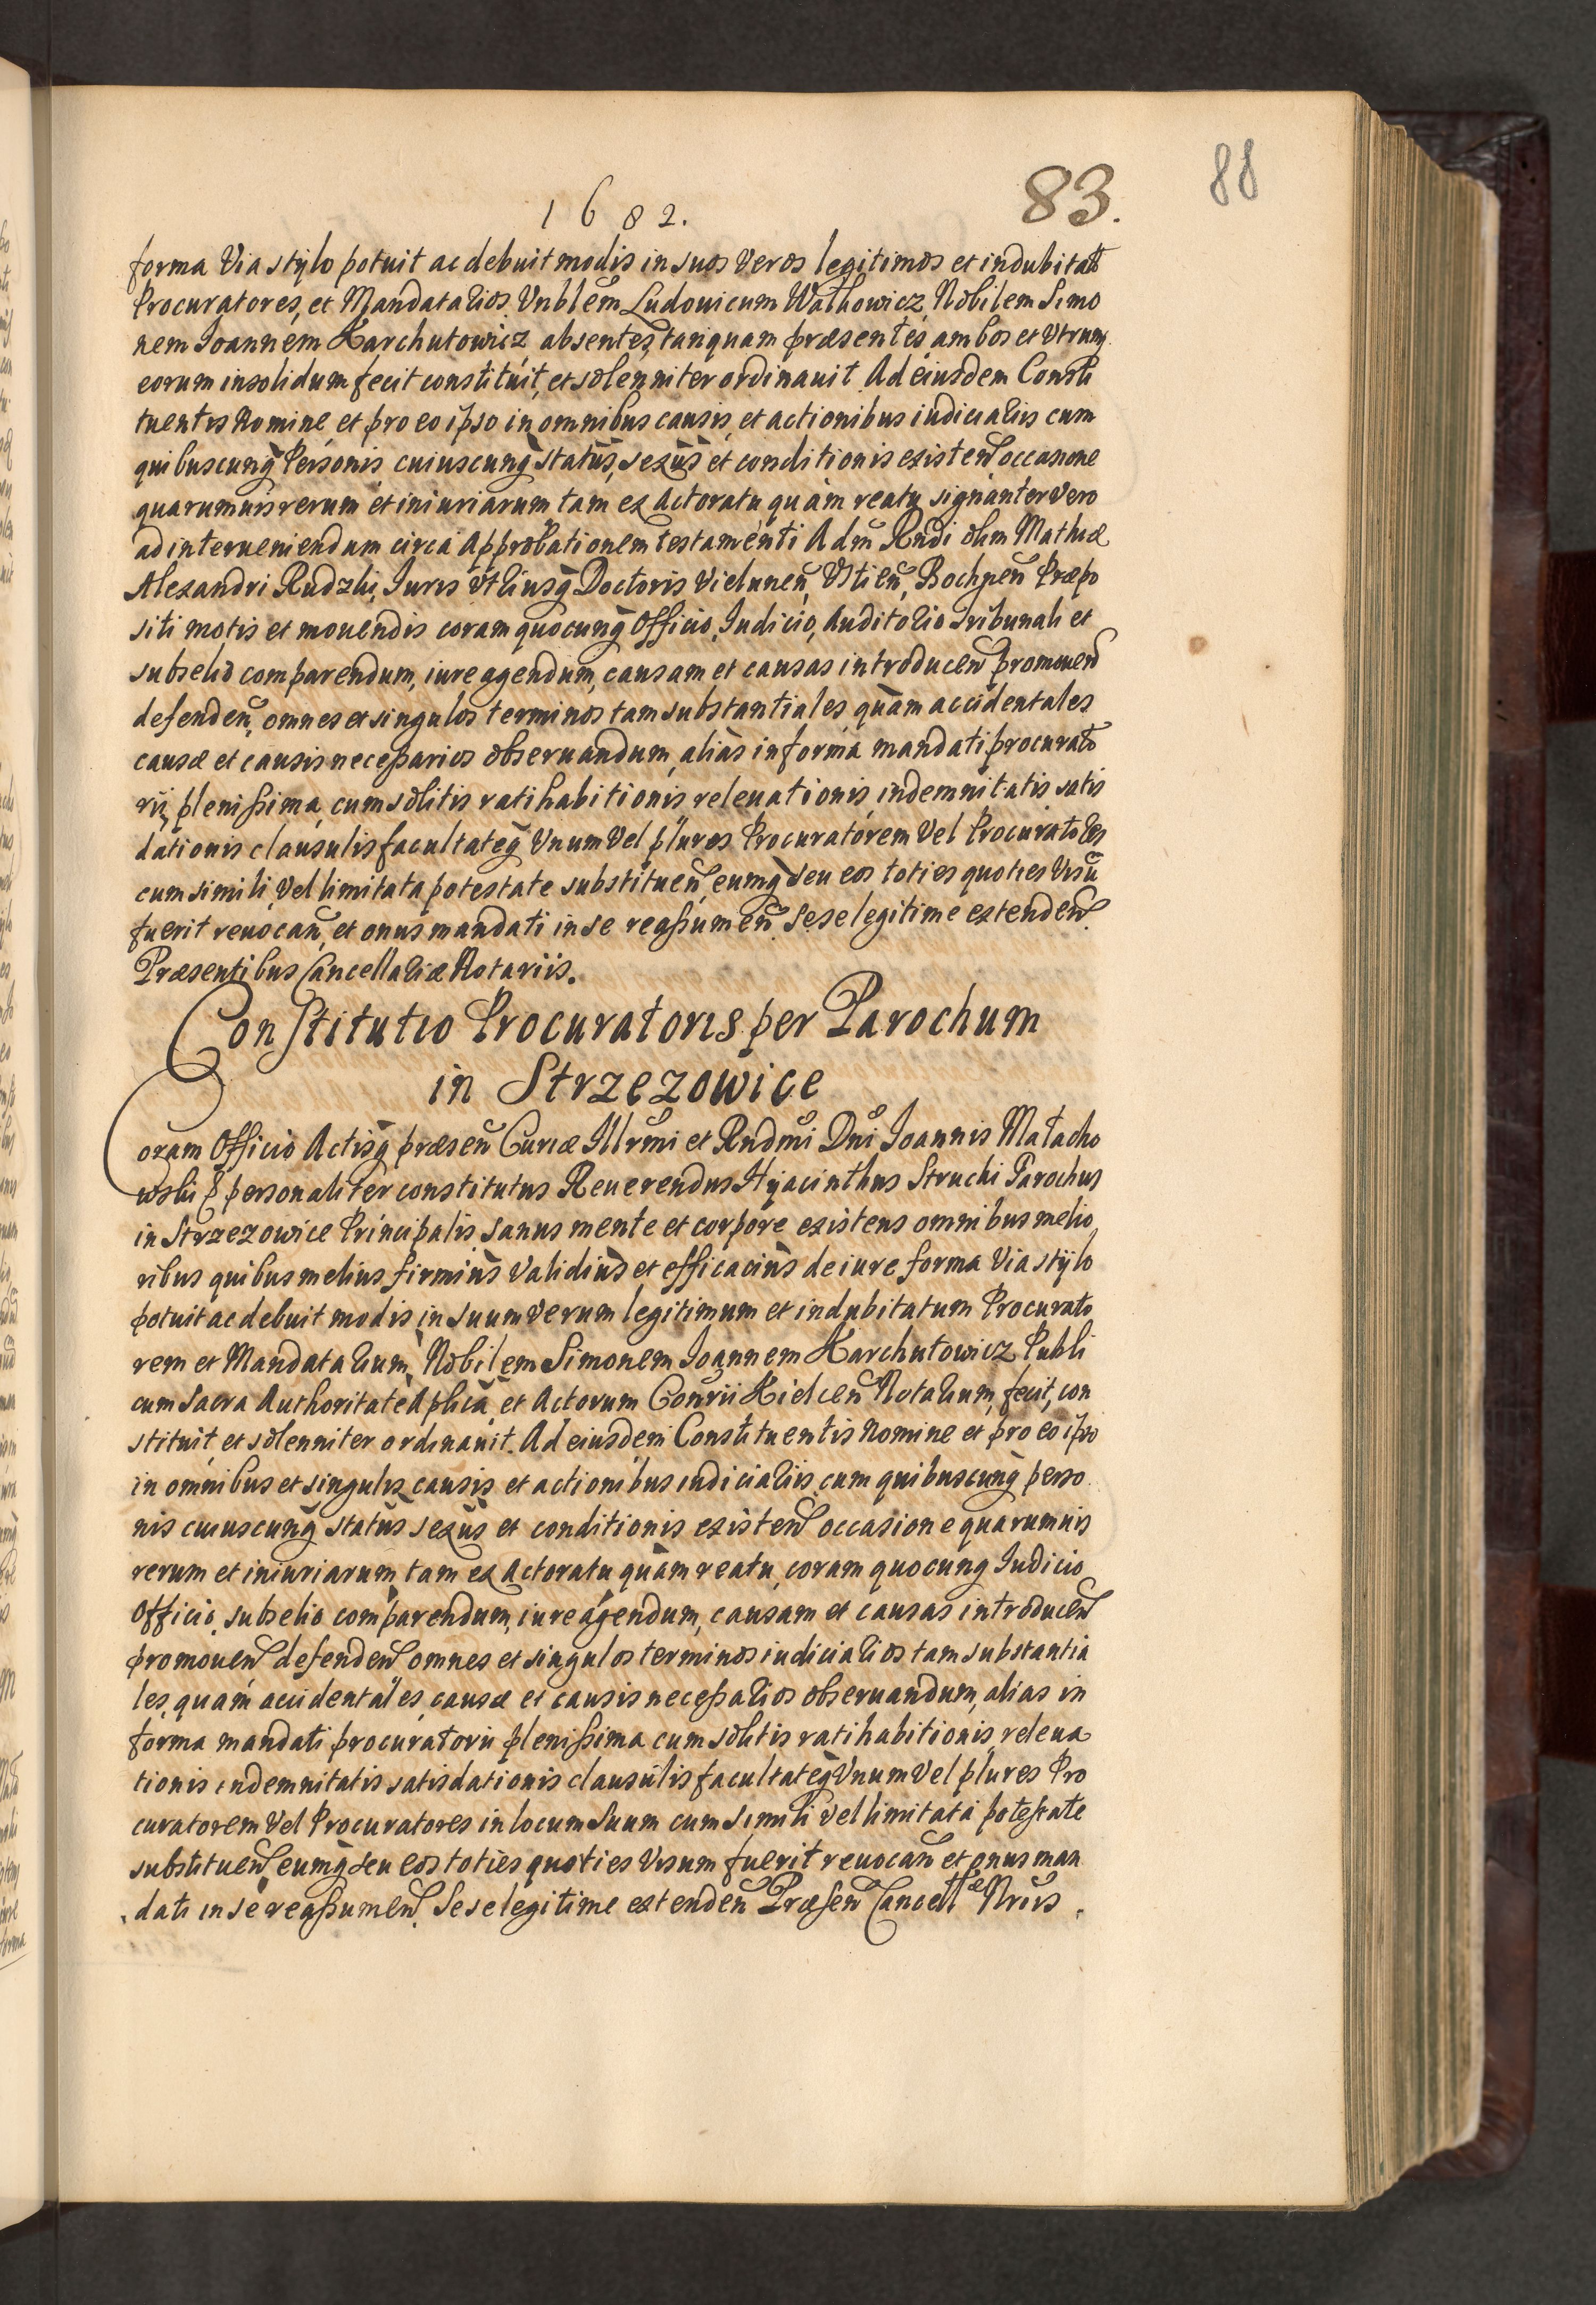 88
1682. 83.
forma Via stylo potuit ac debuit modis in suos veros legitimos et indubitatos
Procuratores, et Mandatarios Vnblem Ludouicum Wałkowicz, Nobilem Simo
nem Joannem Karchutowicz absentes, tanquam præsentes ambos et Vtrumq
eorum insolidum fecit constituit, et solenniter ordinauit. Ad eiusdem Consti
tuentis Nomine et pro eo ipso in omnibus causis, et actionibus iudiciariis cum
quibuscunq̃ Personis cuiuscunq̃ statûs, sexûs et conditionis existeñ occasione
quarumuis rerum et iniuriarum tam ex Actoratu quàm reatu, signanter vero
ad interueniendum circa Approbationem testamenti Adm̃ Rñdi olim Mathiæ
Alexandri Rudzki, Juris Vtriusq̃ Doctoris Vieluneñ, Vstieñ, Bochneñ Præpo
siti motis et mouendis coram quocunq̃ Officio, Judicio, Auditorio Tribunali et
subselio comparendum, iure agendum, causam et causas introduceñ promoueñ
defendeñ, omnes et singulos terminos tam substantiales quàm accidentales
causæ et causis necessarios obseruandum, aliàs in forma mandati procurato
rii, plenissima, cum solitis ratihabitionis, releuationis, indemnitatis satis
dationis clausulis facultateq̃ Vnum Vel plures Procuratorem Vel Procuratores
cum simili, Vel limitata potestate substitueñ, eumq̃ seu eos toties quoties Visũ
fuerit reuocañ, et onus mandati in se reassumeñ. Sese legitimè extendeñ.
Præsentibus Cancellariæ Notariis.
Constitutio Procuratoris per Parochum
in Strzezowice
Coram Officio Actisq̃ præseñ Curiæ Illrm̃i et Rndm̃i Dñi Joannis Małacho
wski p̃ personaliter constitutus Reuerendus Hyacinthus Struchi Parochus
in Strzezowice Principalis, sanus mente et corpore existens omnibus melio
ribus quibus melius firmiùs validiùs et efficaciùs de iure forma Via stylo
potuit ac debuit modis in suum verum legitimum et indubitatum Procurato
rem et Mandatarium, Nobilem Simonem Joannem Karchutowicz Publi
cum Sacra Authoritate Aplicã, et Actorum Consrii Kielceñ Notarium, fecit, con
stituit et solenniter ordinauit. Ad eiusdem Constituentis Nomine et pro eo ipso
in omnibus et singulis causis et actionibus iudiciariis cum quibuscunq̃ perso
nis cuiuscunq̃ statûs sexûs et conditionis existeñ occasione quarumuis
rerum et iniuriarum, tam ex Actoratu quàm reatu, coram quocunq Judicio
Officio, subselio comparendum, iure agendum, causam et causas introduceñ
promoueñ defendeñ omnes et singulos terminos iudiciarios tam substantia
les, quam accidentales, causæ et causis necessarios obseruandum, alias in
forma mandati procuratorii plenissima cum solitis ratihabitionis, releua
tionis indemnitatis satisdationis clausulis facultateq̃ Vnum Vel plures Pro
curatorem Vel Procuratores in locum Suum cum simili vel limitata potestate
substitueñ eumq̃ seu eos toties quoties Visum fuerit reuocañ et onus man
dati in se reassumeñ. Sese legitime extendeñ Præseñ Cancellriæ Nriis.